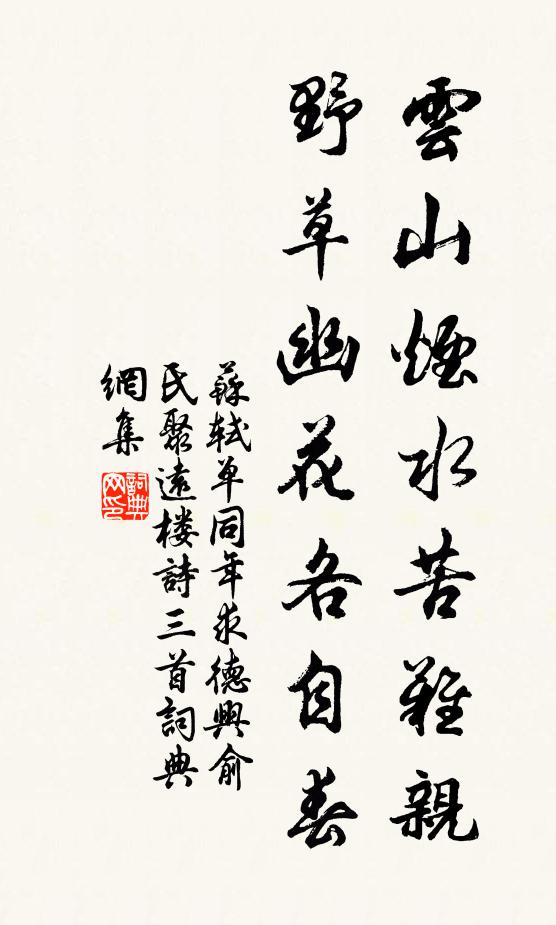 雲山煙水苦難親
野草幽花各自春
蘇軾單同年求德興俞
氏聚遠楼詩三首詞典
網集
詞典
网印